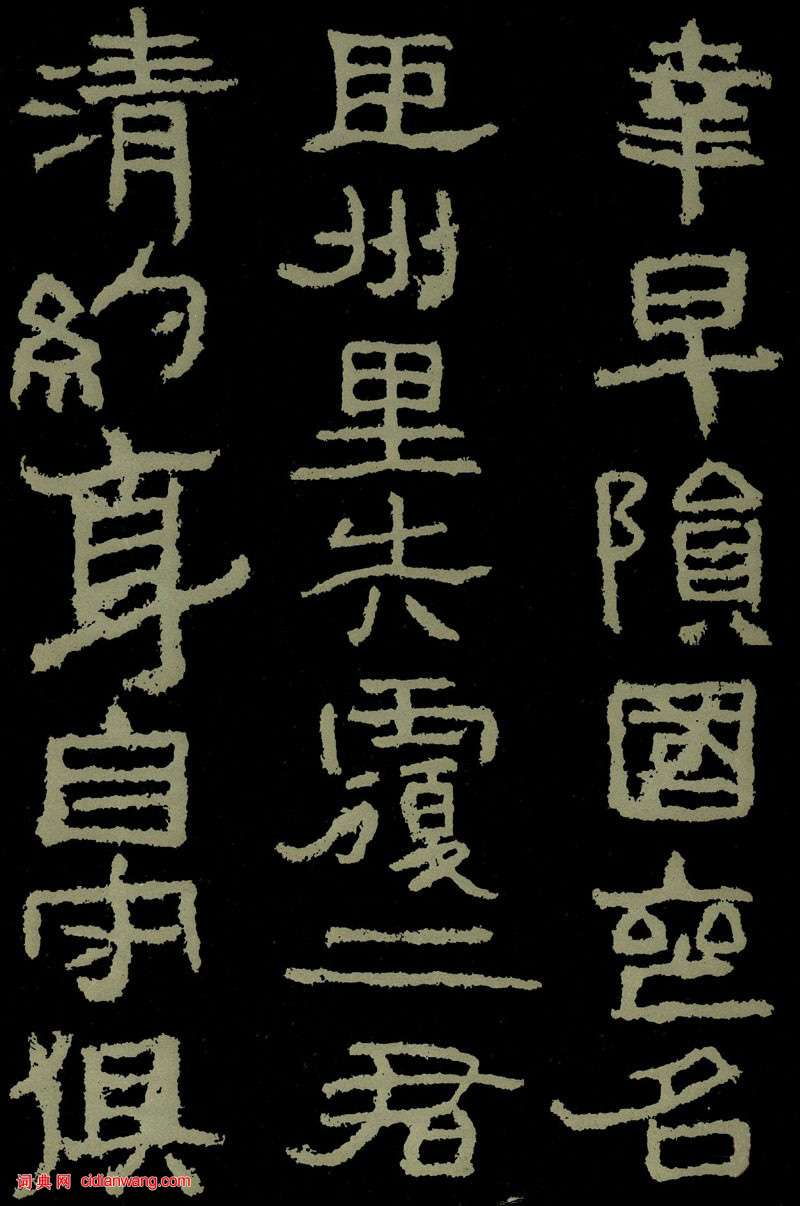 幸早隕國喪名
臣州里失覆二君
清約身自守俱
词典网 cidianwang.com